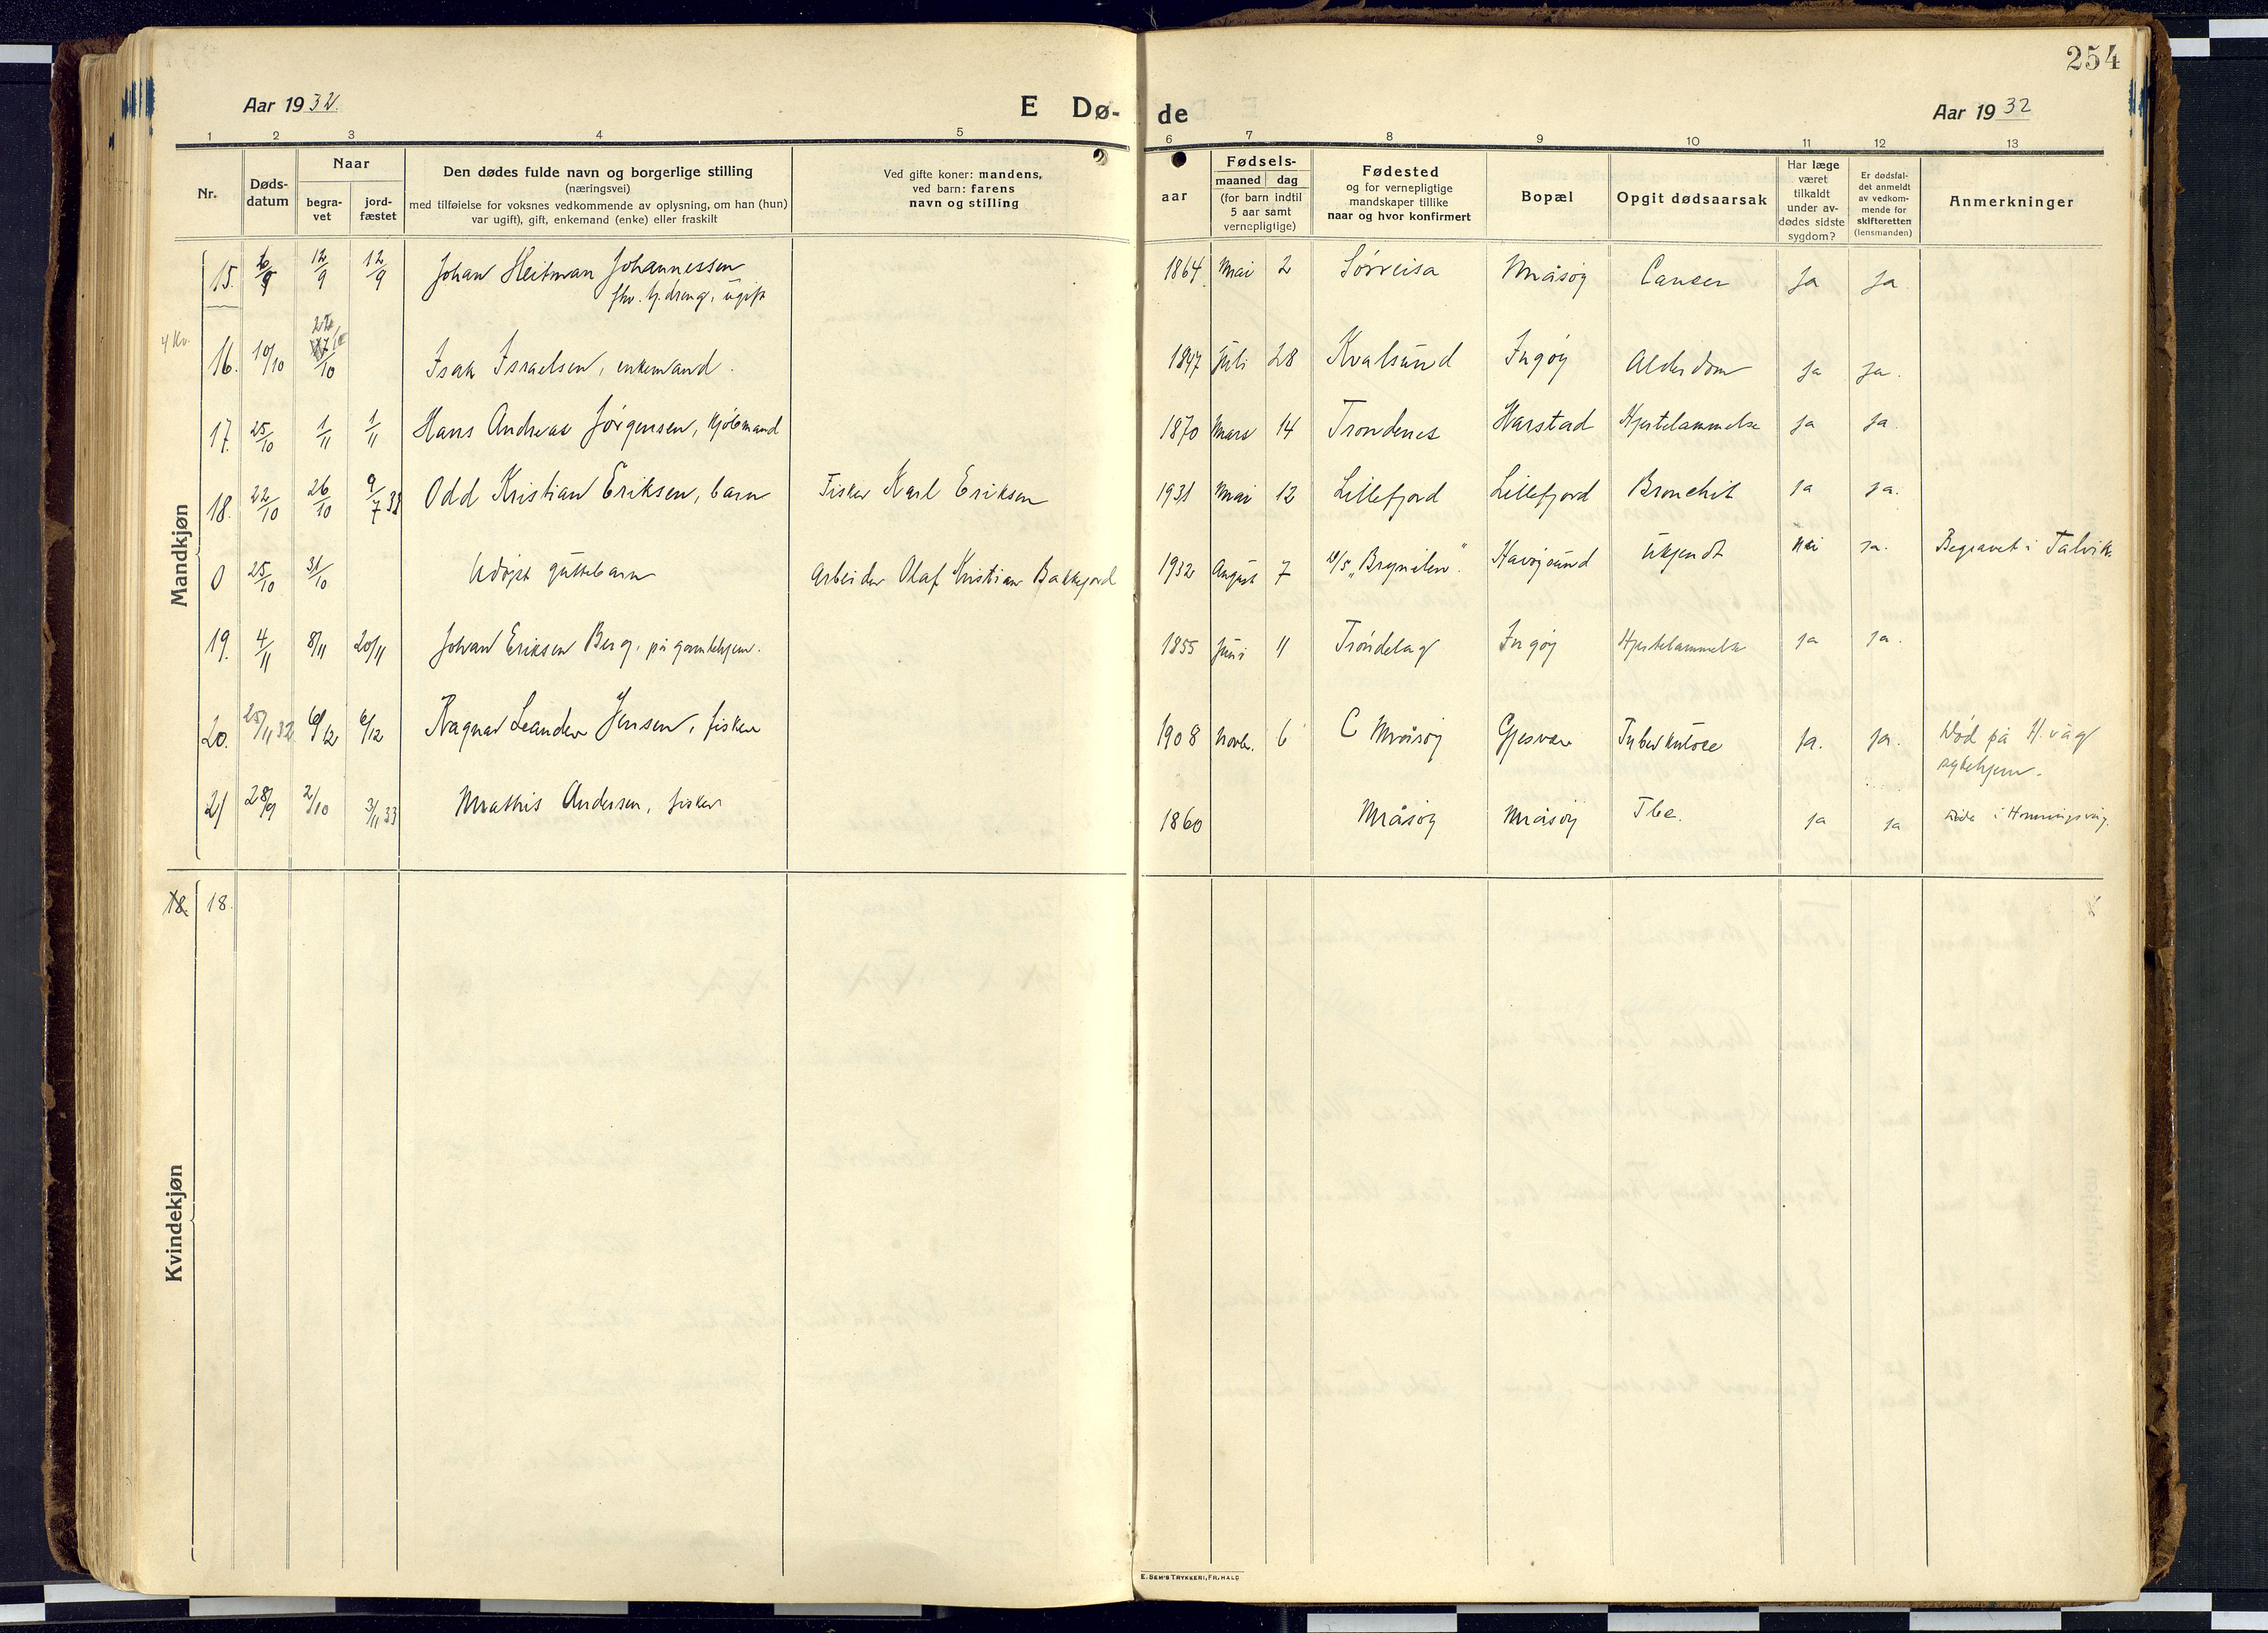 254
Aar 1932.
E Dø-
de
Aar 1932
1 2 3 4 5 6 7 8 9 10 11 12 13
Nr.
Døds-
datum
Naar
begra-
vet
jord-
fæstet
Den dødes fulde navn og borgerlige stilling
(næringsvei)
med tilføielse for voksnes vedkommende av oplysning, om han (hun)
var ugift), gift, enkemand (enke) eller fraskilt
Ved gifte koner: mandens,
ved barn: farens
navn og stilling
aar
Fødsels-
maaned dag
(for barn indtil
5 aar samt
vernepligtige)
Fødested
og for vernepligtige
mandskaper tillike
naar og hvor konfirmert
Bopæl
Opgit dødsaarsak
Har læge
været
tilkaldt
under av-
dødes sidste
sygdom?
Er dødsfal-
det anmeldt
av vedkom-
mende for
skifteretten
(lensmanden)
Anmerkninger
Mandkjøn
15. 6/9 12/9 12/9 Johan Heitman Johannessen 1864 Mai 2 Sørreisa Måsøy Cancer Ja Ja
ugift
4 Kv.
16. 10/10 Isak Israelsen, enkemand. 1847 Juli 28 Kvalsund Ingøy Alderdom Ja Ja.
17. 25/10 1/11 1/11 Hans Andreas Jørgensen, kjøbmand 1870 Mars 14 Trondenes Harstad Hjertelammelse Ja Ja.
18. 22/10 26/10 9/7 33 Odd Kristian Eriksen, barn Fisker Karl Eriksen 1931 Mai 12 Lillefjord Lillefjord Bronchit Ja Ja.
0 25/10 31/10 Udøpt guttebarn Arbeider Olaf Kristian Bakkejord 1932 August 7 Havøysund Ukjendt Nei Ja. Begravet i Talvik
19. 4/11 8/11 20/11 Johan Eriksen Berg, på gamlehjem. 1855 Juni 11 Trøndelag Ingøy Hjertelammelse Ja Ja.
20. 25/11 32 6/12 6/12 Ragnar Leander Jensen, fisker 1908 Novbr. 6 Måsøy Gjesvær Tuberkulose Ja. Ja. Død på H.våg
sykehjem.
21 28/9 2/10 3/11 33 Mathis Andersen, fisker 1860 Måsøy Måsøy Tbc. Ja Ja Døde i Honningsvåg.
Kvindekjøn
18. 18.
E. SEM'S TRYKKERI, FR.HALD